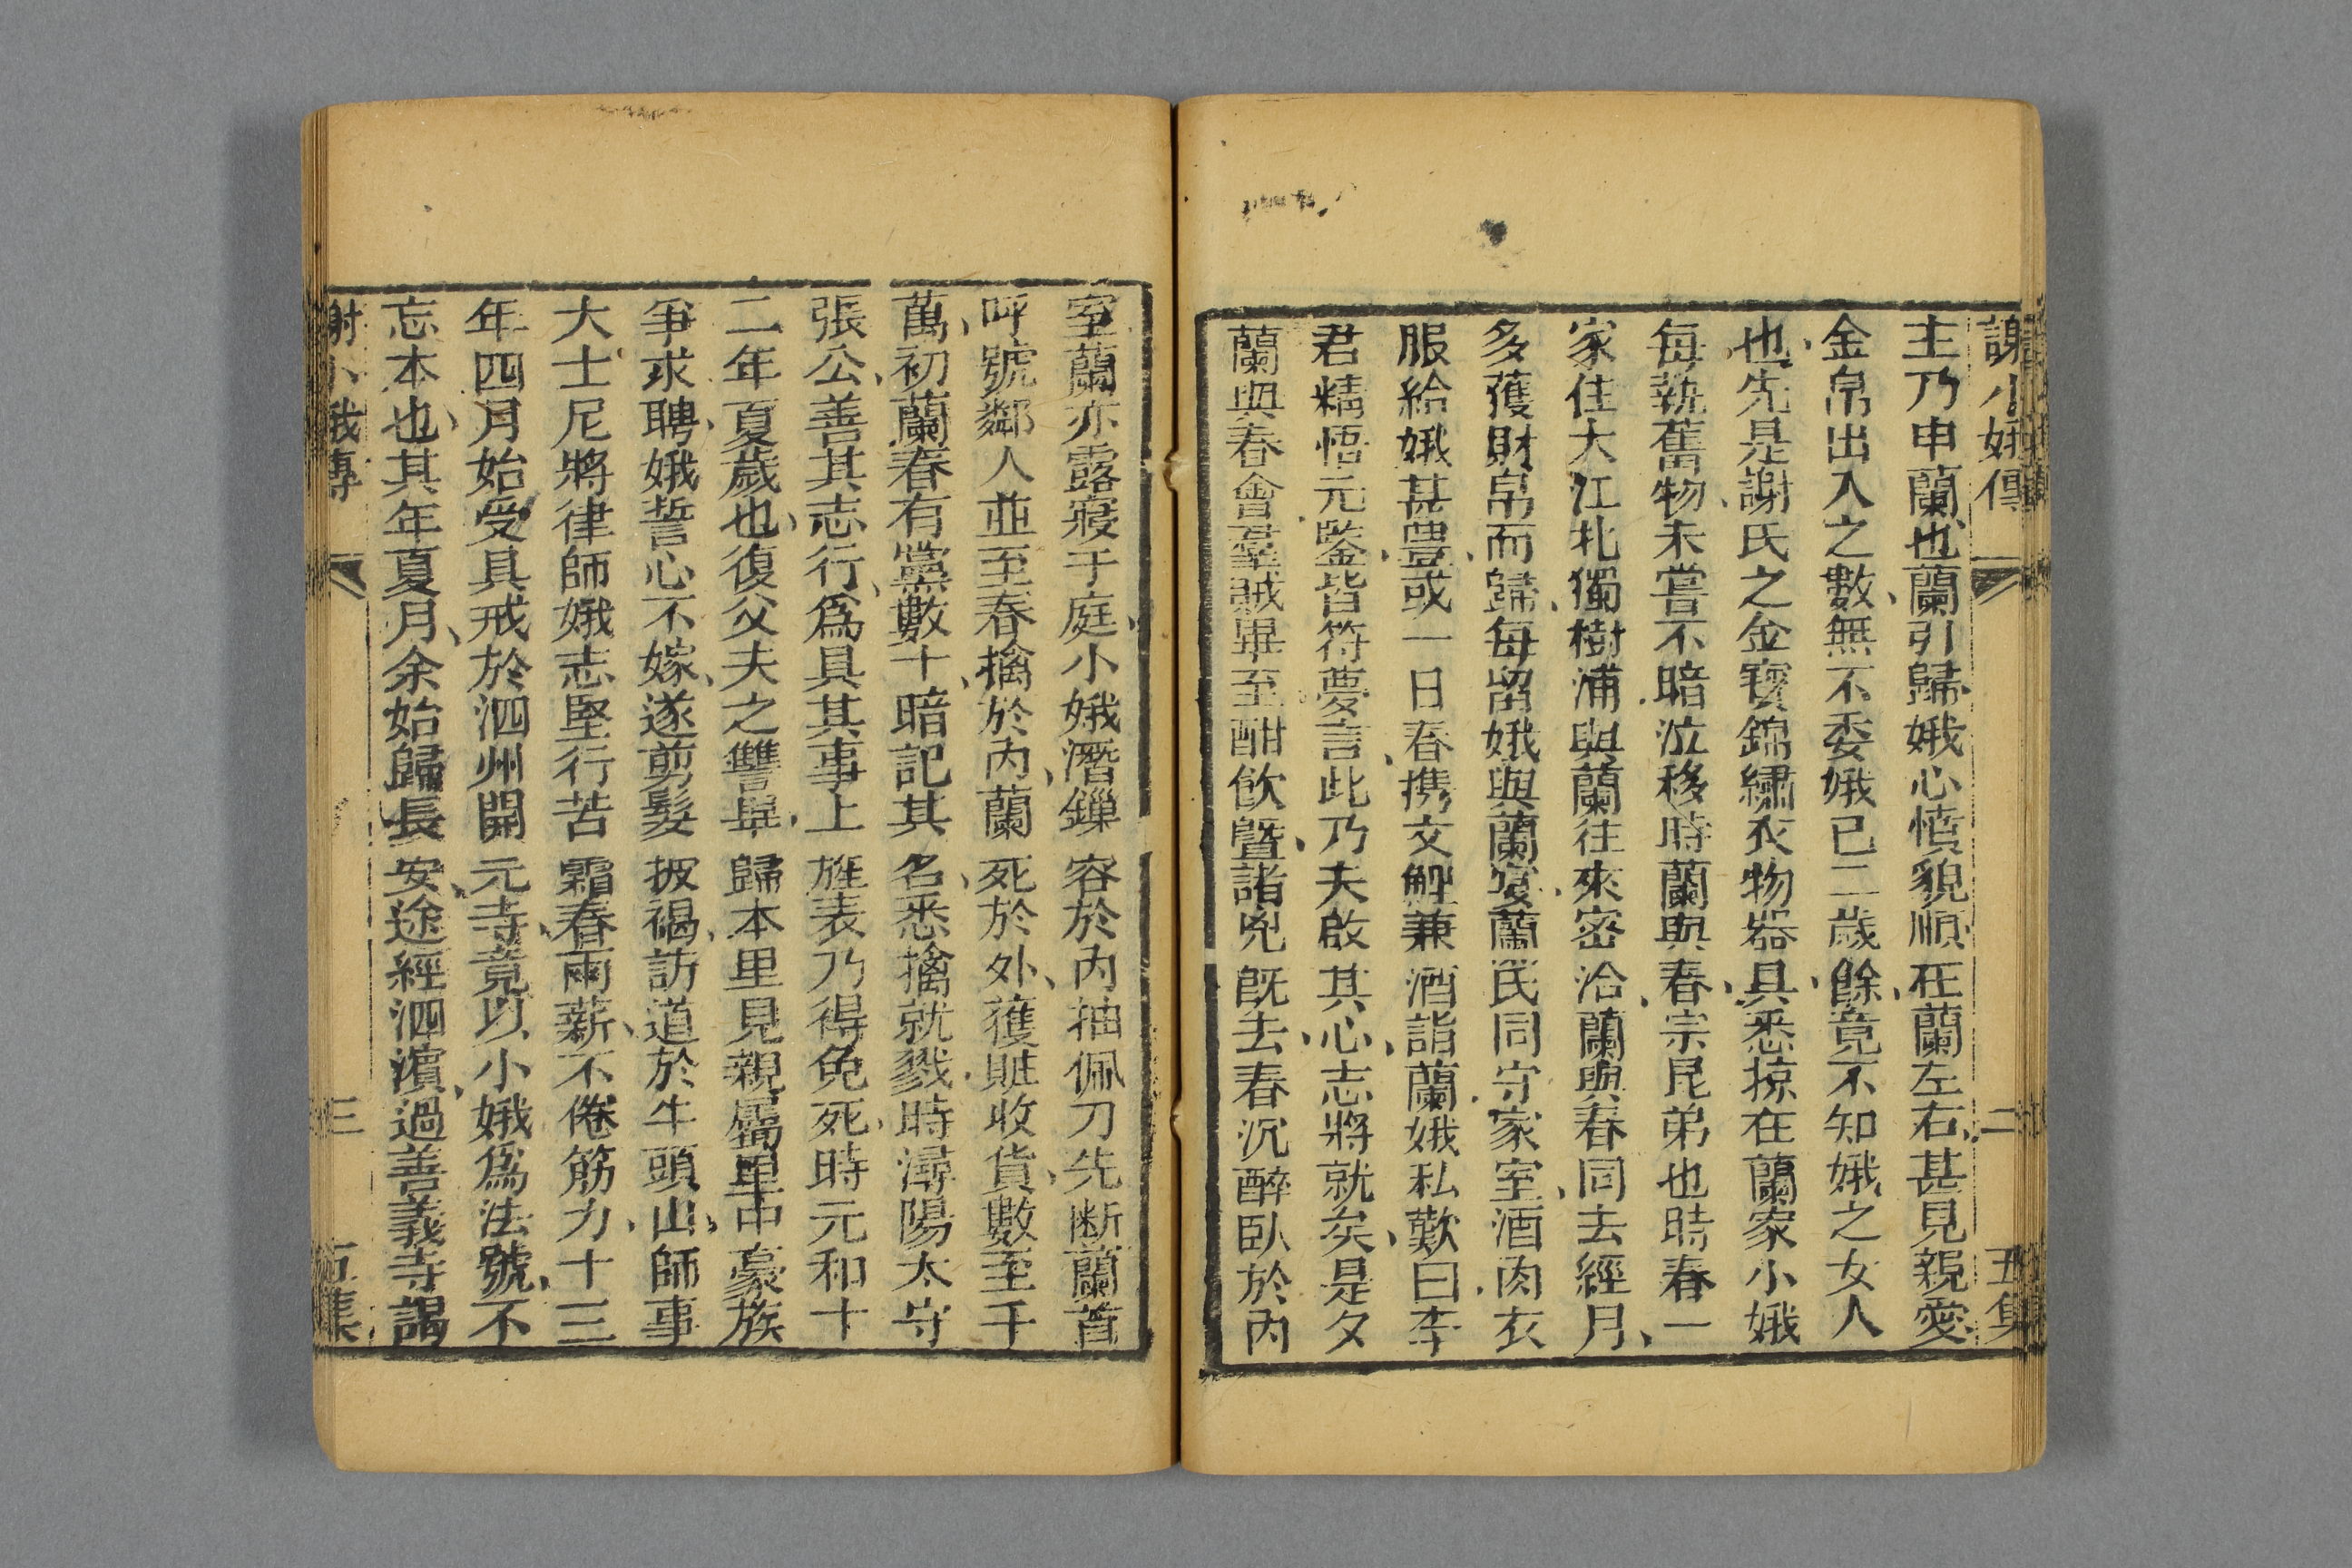 謝小娥傳 二 五集
主乃申蘭也蘭引歸娥心憤貌順在蘭左右甚見親愛
金帛出入之數無不委娥已二歲餘竟不知娥之女人
也先是謝氏之金寶錦繡衣物器具悉掠在蘭家小娥
每執舊物未嘗不暗泣移時蘭與春宗昆弟也時春一
家住大江北獨樹浦與蘭往來密洽蘭與春同去經月
多獲財帛而歸每留娥與蘭妻蘭氏同守家室酒肉衣
服給娥甚豊或一日春携文鯉兼酒詣蘭娥私歎曰李
君精悟元鑒皆符夢言此乃天啟其心志將就矣是夕
蘭與春會羣賊畢至酣飲曁諸兇既去春沉醉臥於內
室蘭亦露寢于庭小娥潛鏁春於內抽佩刀先断蘭首
呼號鄰人並至春擒於內蘭死於外獲賍收貨數至千
萬初蘭春有黨數十暗記其名悉擒就戮時潯陽太守
張公善其志行爲具其事上旌表乃得免死時元和十
二年夏歲也復父夫之讐畢歸本里見親屬里中豪族
爭求聘娥誓心不嫁遂剪髮披褐訪道於牛頭山師事
大士尼將律師娥志堅行苦霜春雨薪不倦筋力十三
年四月始受具戒於泗州開元寺竟以小娥爲法號不
忘本也其年夏月余始歸長安途經泗濱過善義寺謁
謝小娥傳 三 五集